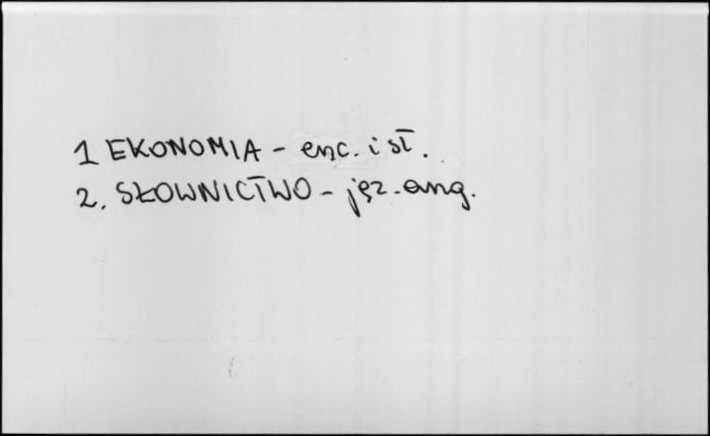 1 EKONOMIA - enc. i sł.
2. SŁOWNICTWO - jęz. ang.